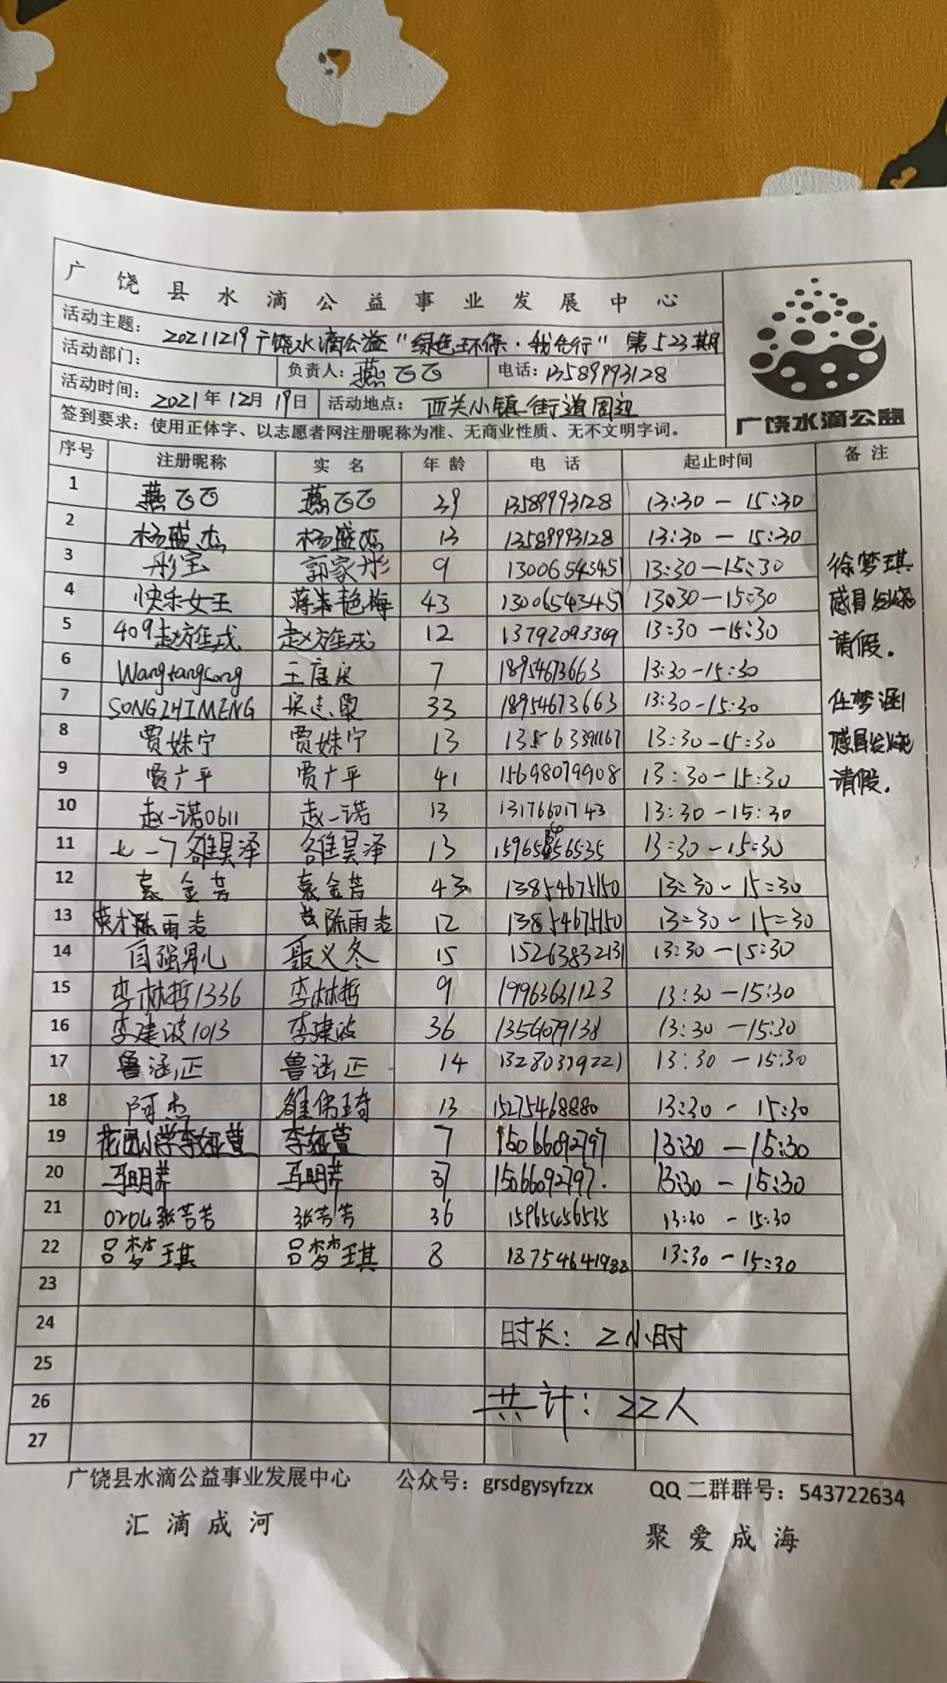 广饶县水滴公益事业发展中心
活动主题： 20211219广饶水滴公益“绿色环保·我先行”第523期
活动部门： 负责人：燕飞飞 电话：13589993128
活动时间： 2021年12月19日 活动地点： 西关小镇 街道周边
签到要求：使用正体字、以志愿者网注册昵称为准、无商业性质、无不文明字词。
广饶水滴公益
序号 注册昵称 实名 年龄 电话 起止时间 备注
1 燕飞飞 燕飞飞 39 13589993128 13:30-15:30
2 杨盛杰 杨盛杰 13 13589993128 13:30-15:30
3 彤宝 郭家彤 9 13006543451 13:30-15:30
4 快乐女王 艳梅 43 13006543451 13:30-15:30
5 409赵 赵 12 13792093369 13:30-15:30
6 Wangtangsong 王 7 18954673663 13:30-15:30
7 SONGZHIMENG 33 18954673663 13:30-15:30
8 贾姝宁 贾姝宁 13 13:30-15:30
9 贾广平 贾广平 41 15698079908 13:30-15:30
10 赵一诺0611 赵一诺 13 13176601743 13:30-15:30
11 七一7雒昊泽 雒昊泽 13 13:30-15:30
12 袁金芳 袁金芳 43 13854675150 13:30-15:30
13 英才陈雨 陈雨 12 13854675150 13=30-15=30
14 自强男儿 聂义冬 15 15263832131 13:30-15:30
15 李林哲1336 李林哲 9 19963631123 13:30-15:30
16 李建波1013 李建波 36 13:30-15:30
17 鲁涵正 鲁涵正 14 13280379221 13:30-15:30
18 阿杰 雒伟琦 13 15275468880 13:30-15:30
19 花园小学李娅萱 李娅萱 7 15066092797 13:30-15:30
20 马明芹 马明芹 37 15066092797. 13:30-15:30
21 0204张芳芳 张芳芳 36 15965456535 13:30-15:30
22 吕梦琪 吕梦琪 8 18754641988 13:30-15:30
23
24 时长：2小时
25
26 共计：22人
27
徐梦琪
感冒发烧
请假.
任梦涵
感冒发烧
请假.
广饶县水滴公益事业发展中心 公众号：grsdgysyfzzx QQ二群群号：543722634
汇滴成河 聚爱成海